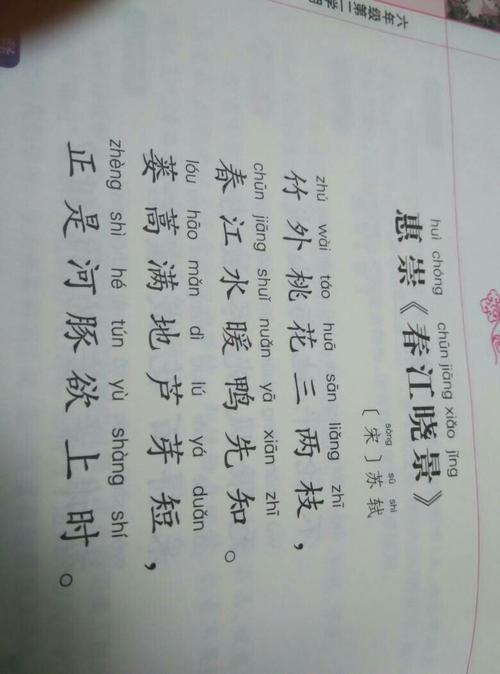 六年级第二学期
huì chóng chūn jiāng xiǎo jǐng
惠崇《春江晓景》
sòng sū shì
〔宋〕苏轼
zhú wài táo huā sān liǎng zhī
竹外桃花三两枝，
chūn jiāng shuǐ nuǎn yā xiān zhī
春江水暖鸭先知。
lóu hāo mǎn dì lú yá duǎn
蒌蒿满地芦芽短，
zhèng shì hé tún yù shàng shí
正是河豚欲上时。